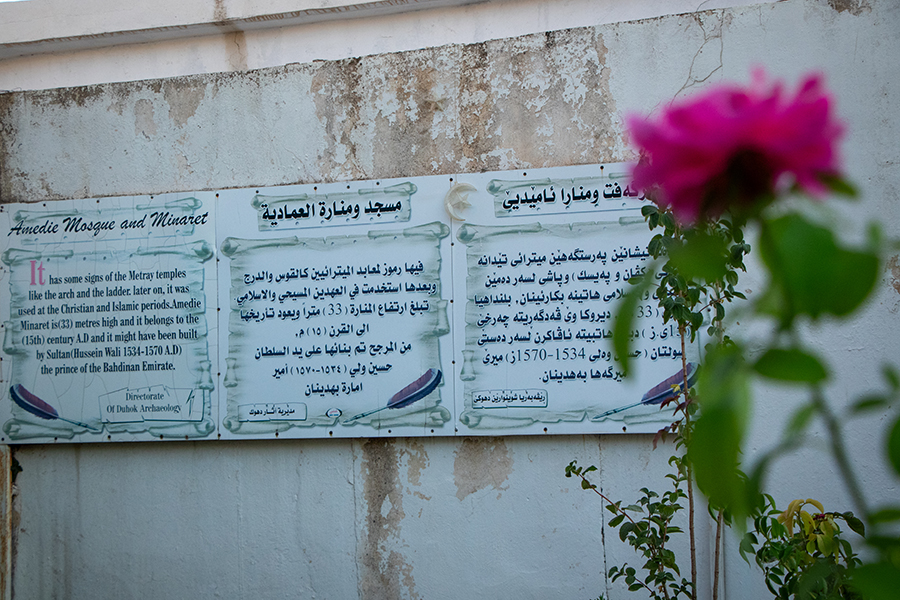 Amedie Mosque and Minaret
It has some signs of the Metray temples
like the arch and the ladder, later on, it was
used at the Christian and Islamic periods.Amedie
Minaret is(33) metres high and it belongs to the
(15th) century A.D and it might have been built
by Sultan(Hussein Wali 1534-1570 A.D)
the prince of the Bahdinan Emirate.
Directorate
Of Duhok Archaeology
مسجد ومنارة العمادية
فيها رموز لمعابد الميترائيين كالقوس والدرج
وبعدها استخدمت في العهدين المسيحي والاسلامي
تبلغ ارتفاع المنارة (33) مترا ويعود تاريخها
الى القرن (١٥) م.
من المرجح تم بنائها على يد السلطان
حسين ولي (١٥٣٤-١٥٧٠) أمير
امارة بهدينان
مديرية آثار دهوك
ومنارا ئاميدييێ
نيشانێن پەرستگەهێن ميترانى تێدانە
و پەيسك) وپاشى لسەر دەمێن
هاتينە بكارئينان، بلنداهيا
(33) ديروكا وێ ڤەدگەريتە چەرخێ
هاتبيتە ئاڤاكرن لسەر دەستێ
ولى 1534-1570ز) ميرێ
ميرگەها بەهدينان.
رێڤەبەريا شوينوارێن دهوكێ